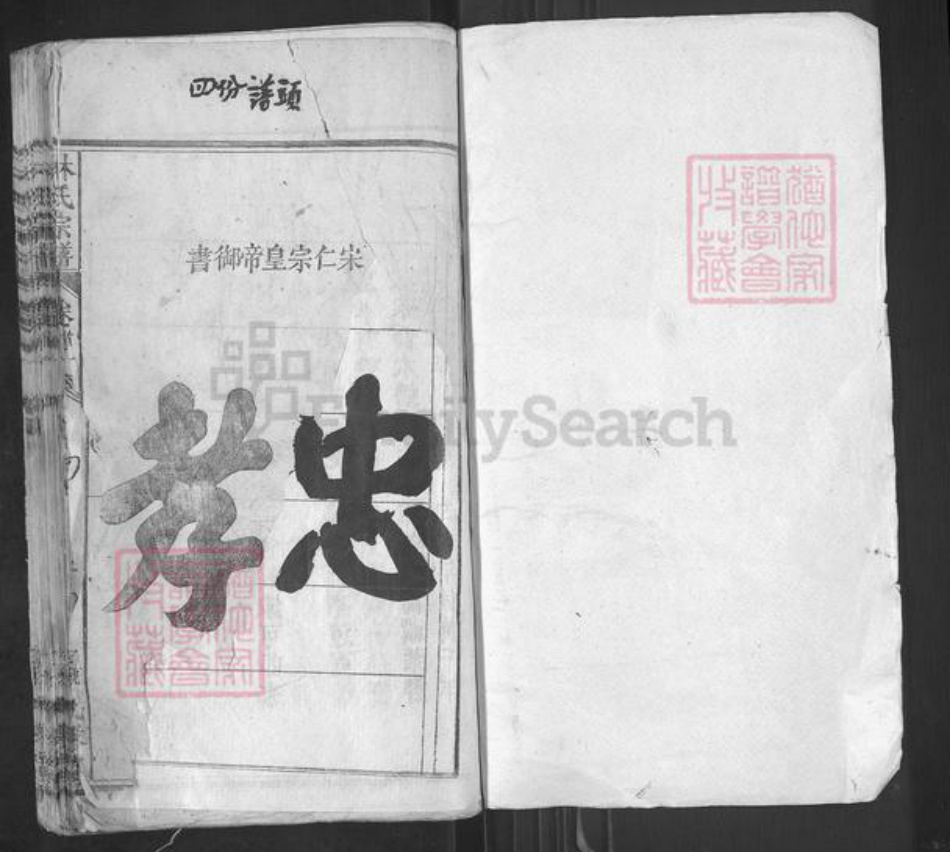 四份譜頭
宋仁宗皇帝御書
忠孝
林氏宗譜
卷首
猶他家
譜學會
收藏
猶他家
譜學會
收藏
FamilySearch